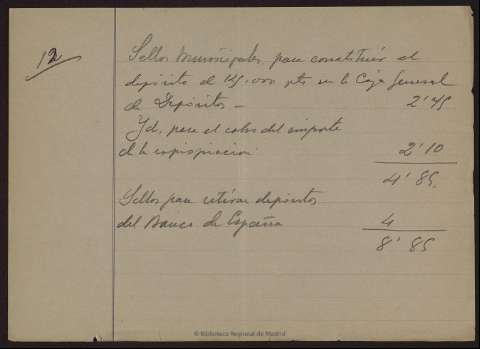 12
Sellos Municipales para constituir el
depósito de 145,000 pts en la Caja General
de Depósitos — 2'75
Id, para el cobro del importe
de la expropiación 2'10
4'85.
Sellos para retirar depósitos
del Banco de España 4
8'85
© Biblioteca Regional de Madrid